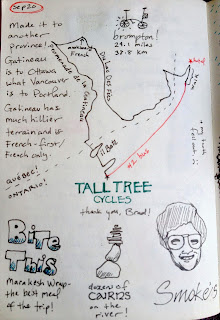 Sep 20
Made it to
another
province!
Gatineau
is to Ottawa
what Vancouver
is to Portland.
Gatineau has
much hillier
terrain and is
French-first/
French only.
QUÉBEC!
ONTARIO!
brompton!
24.1 miles
38.8 km
awkward
French
Promenade de la Gatineau
#2 bus
TALL TREE
CYCLES
thank you, Brad!
Bite
This
Marakesh Wrap-
the best meal
of the trip!
dozens of
CAIRNS
on the
river!
Smoke's